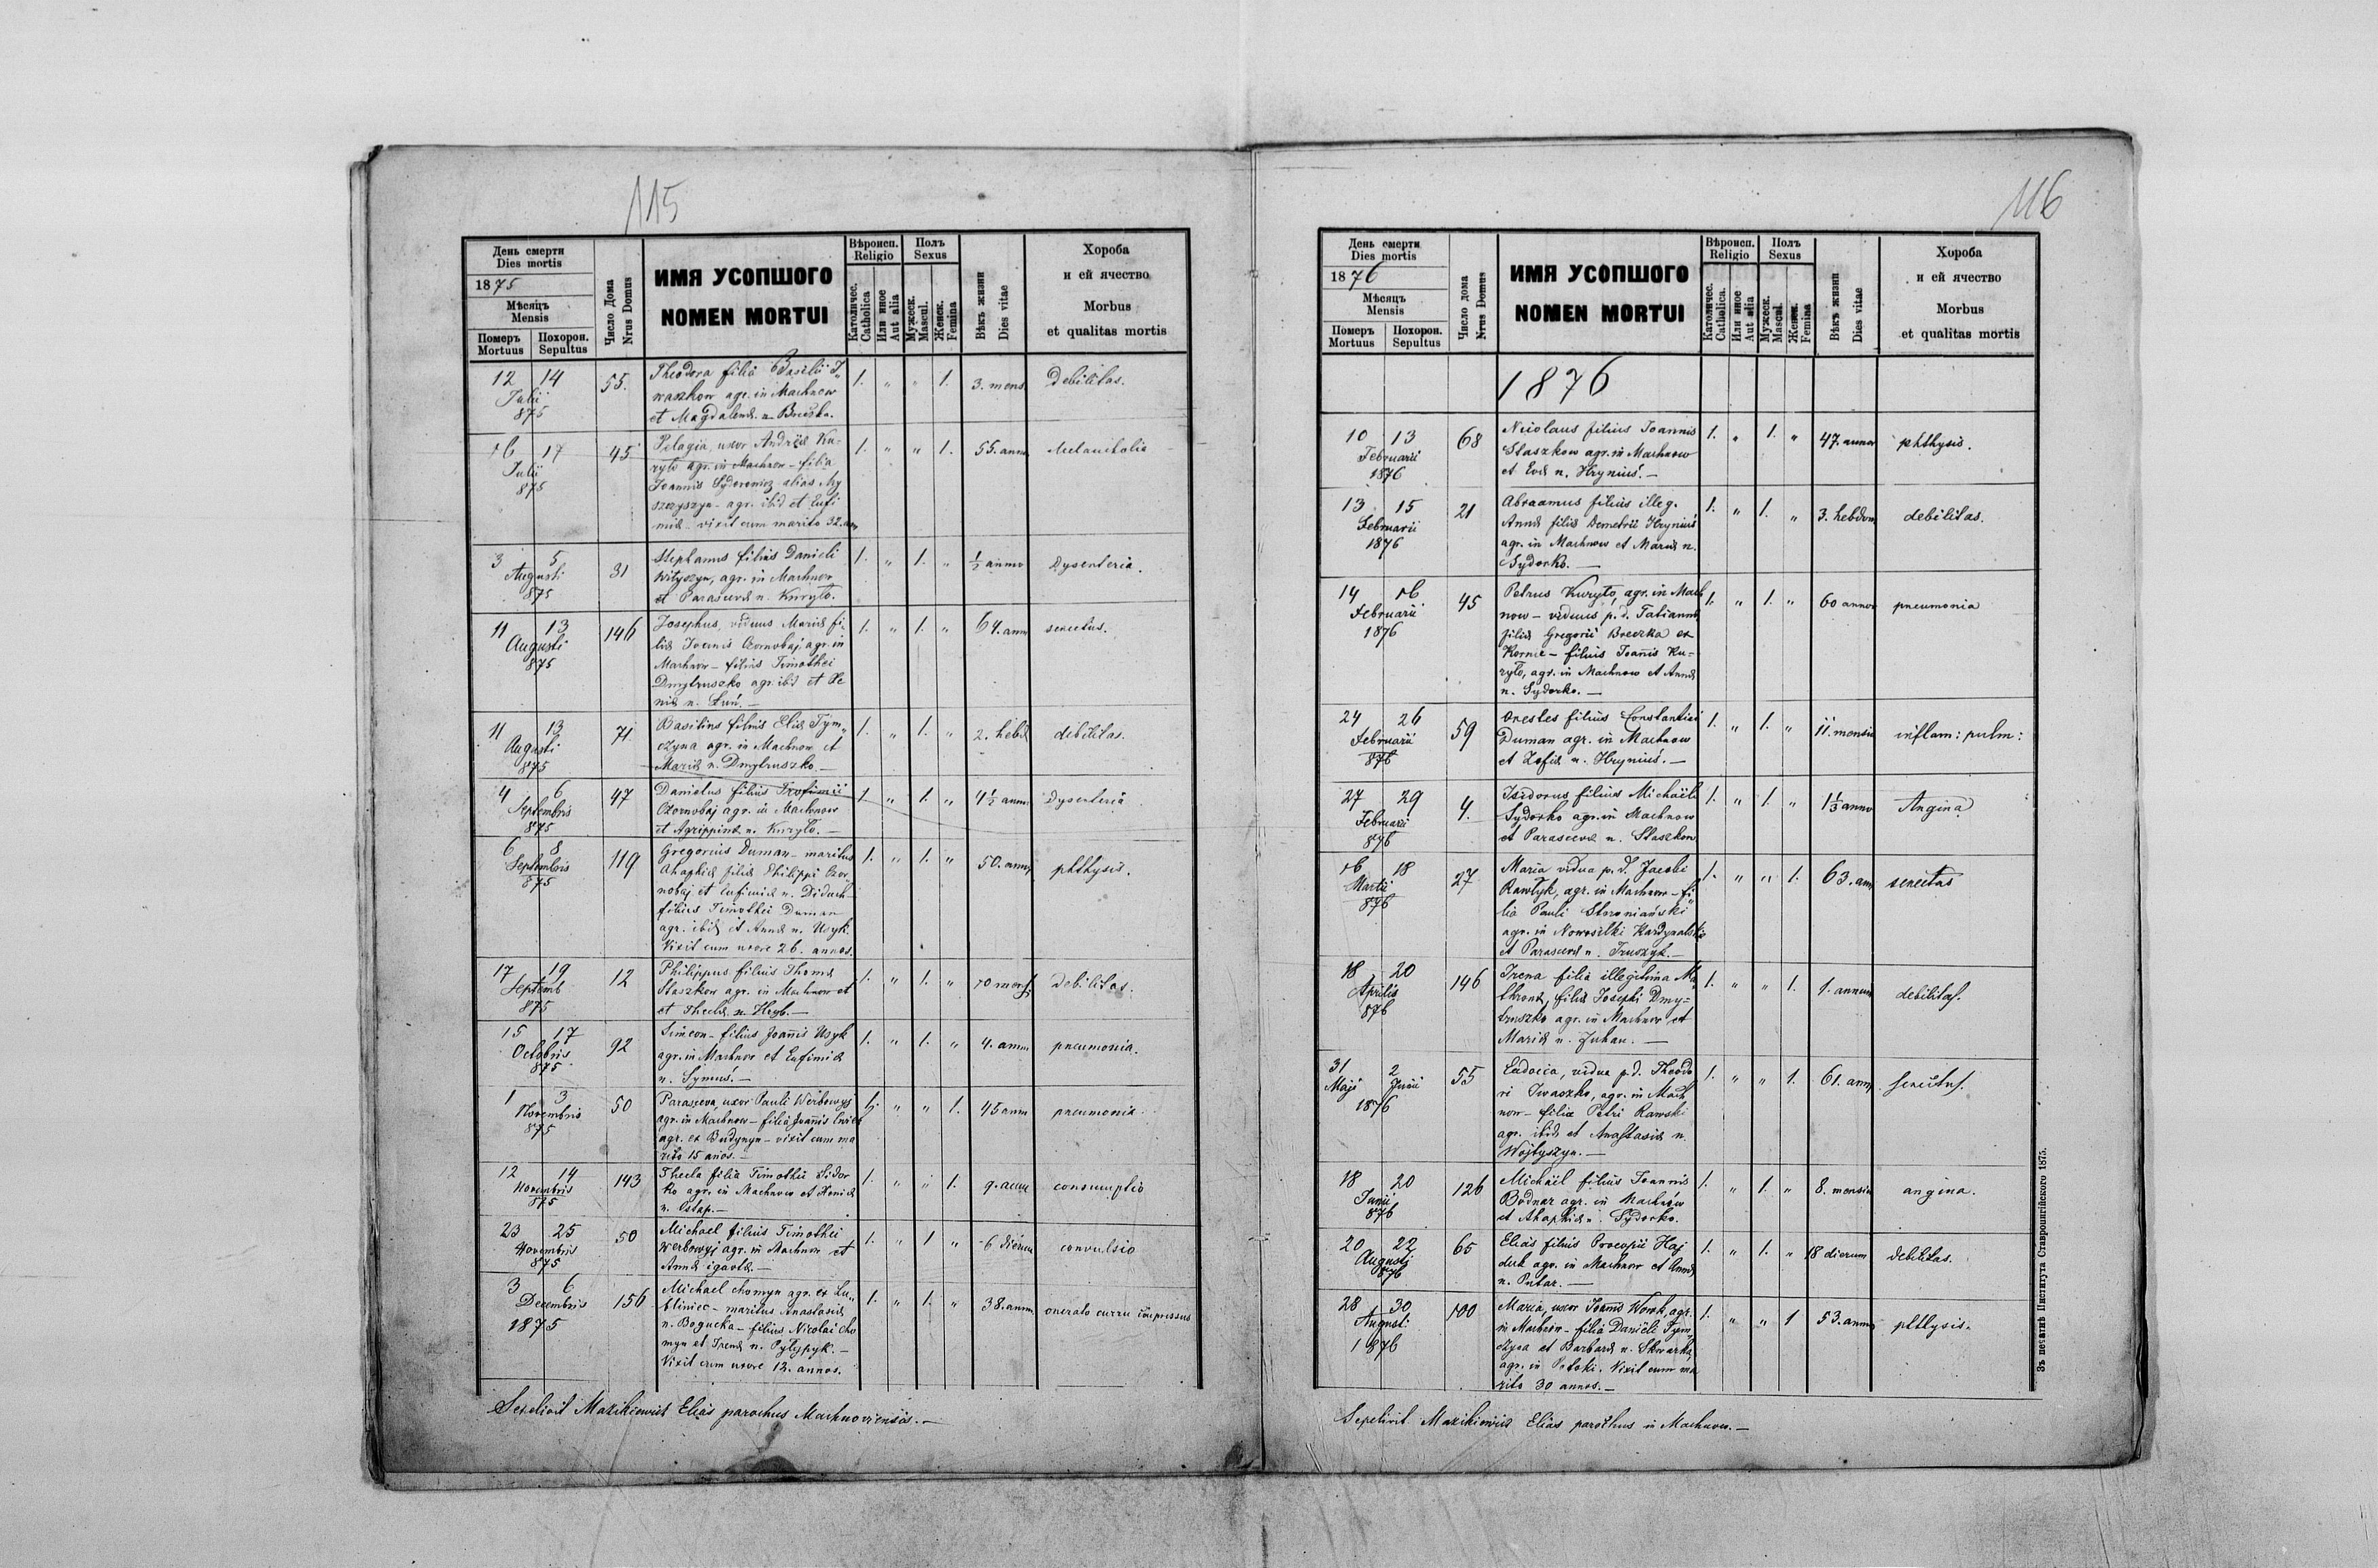 115
День смерти
Dies mortis
1875
Мѣсяцъ
Mensis
Померъ Похорон.
Mortuus Sepultus
Число Дома
Nrus Domus
ИМЯ УСОПШОГО
NOMEN MORTUI
Вѣроисп.
Religio
Католичес.
Catholica
Или иное
Aut alia
Полъ
Sexus
Мужеск.
Mascul.
Женск.
Femina
Вѣкъ жизни
Dies vitae
Хороба
и ей ячество
Morbus
et qualitas mortis
12 14
Julii
875
55.
Theodora filia Basilii I„
waszkow agr. in Machnow
et Magdalenæ n.
1. „ „ 1.
3. mens.
Debilitas.
16 17
Julii
875
45
Pelagia uxor Andreæ Ku-
ryło agr. in Machnow - filia
Joannis Sydorowicz alias My
szczyszyn - agr. ibid et Eufi
miæ - vixit cum marito 32. an
1. „ „ 1.
55. ann.
Melancholia
3 5
Augusti
875
31
Stephanus filius Danieli
Wityszyn, agr. in Machnow
et Parascevæ n. Kuryło.
1. „ 1. „
½ anno
Dysenteria.
11 13
Augusti
875
146
Josephus, viduus Mariæ fi-
liæ Joannis Czornobaj, agr. in
Machnow - filius Timothei
Dmytruszko agr. ibid et Xe
niæ n. Łuń. -
1. „ 1. „
64. ann
senectus.
11 13
Augusti
875
71
Basilius filius Eliæ Tym„
czyna agr. in Machnow et
Mariæ n. Dmytruszko. -
1. „ 1. „
2. hebd
debilitas.
4 6
Septembris
875
47
Danielus filius Trofimii
Czornobaj agr. in Machnow
et Agrippinæ n. Kuryło. -
1. „ 1. „
4½ ann.
Dysenteria
6 8
Septembris
875
119
Gregorius Duman - maritus
Ahaphiæ filiæ Philippi Czor-
nobaj et Eufimiæ n. Diduch -
filius Timothei Duman
agr. ibid et Annæ n. Usyk.
Vixit cum uxore 26. annos.
1. „ 1. „
50. ann.
phthysis.
17 19
Septemb
875
12
Philippus filius Thomæ
Staszkow agr. in Machnow et
et Theclæ n. Hryb. -
1. „ 1. „
10 mens.
debilitas.
15 17
Octobris
875
92
Simeon - filius Joannis Usyk
agr. in Machnow et Eufimiæ
n. Symuś. -
1. „ 1. „
4. ann
pneumonia.
1 3
Novembris
875
50
Parasceva uxor Pauli Werbowyj
agr. in Machnow - filia Joannis
agr. ex Budynyn - vixit cum ma
rito 15 años. -
1. „ „ 1.
45 ann
pneumonia.
12 14
Novembris
875
143
Thecla filia Timothei Sidor
ko agr. in Machnow et Xeniæ
n. Ostap. -
1. „ „ 1.
9. ann
consumptio
23 25
Novembris
875
50
Michael filius Timothei
Werbowyj agr. in Machnow et
Annæ
1. „ 1 „
6 dierum
convulsio
3 6
Decembris
1875
156
Michael Chomyn agr. ex Lu„
bliniec - maritus Anastasiæ
n. Bogucka - filius Nicolai Cho
myn et Irenæ n. Pylypyk. -
Vixit cum uxore 12. annos.
1. „ 1. „
38. annor
onerato curru impressus
Sepelivit Mazikiewicz Elias parochus Machnoviensis. -
116
День смерти
Dies mortis
1876
Мѣсяцъ
Mensis
Померъ Похорон.
Mortuus Sepultus
Число дома
Nrus Domus
ИМЯ УСОПШОГО
NOMEN MORTUI
Вѣроисп.
Religio
Католичес.
Catholica.
Или иное
Aut alia
Полъ
Sexus
Мужеск.
Mascul.
Женск.
Femina
Вѣкъ жизни
Dies vitae
Хороба
и ей ячество
Morbus
et qualitas mortis
1876
10 13
Februarii
1876
68
Nicolaus filius Joannis
Staszkow agr. in Machnow
et Evæ n. Hryniuś. -
1. „ 1. „
47. annor
phthysis.
13 15
Februarii
1876
21
Abraamus filius illeg.
Annæ filiæ Demetrii Hryniuś
agr. in Machnow et Mariæ n.
Sydorko. -
1. „ 1. „
3. hebdom
debilitas.
14 16
Februarii
1876
45
Petrus Kuryło, agr. in Mach
now - viduus p. d. Tatiannæ
filiæ Gregorii Breczka ex
Kornie - filius Joañis Ku-
ryło, agr. in Machnow et Annæ
n. Sydorko. -
1. „ 1. „
60 annor
pneumonia
24 26
Februarii
876
59
Orestes filius Constantini
Duman agr. in Machnow
et Zofiæ n. Hryniuś. -
1. „ 1. „
11. mensiu
inflam: pulm:
27 29
Februarii
876
4.
Isidorus filius Michaeli
Sydorko agr. in Machnow
et Parascevæ n. Staszkow
1. „ 1. „
1⅓ anno
Angina
16 18
Martii
876
27
Maria vidua p. d. Jacobi
Rawłyk, agr. in Machnow - fi„
lia Pauli Stroniański
agr. in Nowosiłki Kardynalskie
et Parascevæ n. Truszyk. -
1. „ „ 1.
63. ann
senectus
18 20
Aprilis
876
146
Irena filia illegitima Ma
thronæ, filiæ Josephi Dmy-
truszko agr. in Machnow et
Mariæ n. Juhan. -
1. „ „ 1.
1. annum
debilitas.
31 2
Maji Junii
1876
55
Eudocia, vidua p. d. Theodo
ri Iwaszko, agr. in Mach
now - filia Petri Rawski
agr. ibid et Anastasiæ n.
Wojtyszyn. -
1. „ „ 1.
61. ann
senectus.
18 20
Junii
876
126
Michael filius Joannis
Bodnar agr. in Machnow
et Ahaphiæ n. Sydorko.
1. „ 1. „
8. mensiu
angina.
20 22
Augusti
876
65
Elias filius Procopii Haj
duk agr. in Machnow et Annæ
n. Putar. -
1. „ 1. „
18 dierum
debilitas.
28 30
Augusti
1876
100
Maria, uxor Joannis Wowk, agr.
in Machnow - filia Danieli Tym
czyna et Barbaræ n. Skwarko,
agr. in Potoki. Vixit cum ma
rito 30 annos. -
1. „ „ 1
53. anno
phthysis.
Sepelivit Mazikiewicz Elias parochus in Machnow. -
Зъ печатнѣ Института Ставропигійского 1875.